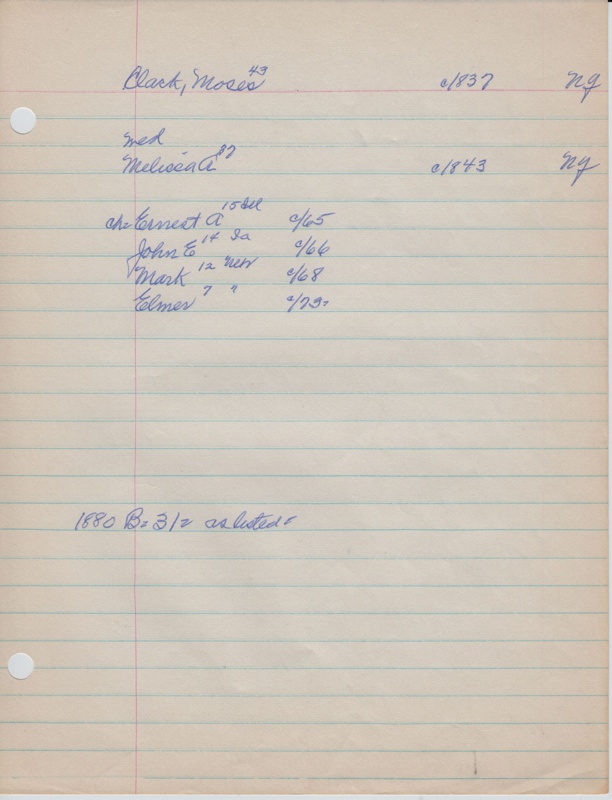 Clack, Moses 43 c/837 NY
med
Melissa A 37 c/843 NY
ch= Ernest A 15 Ill c/65
John E 14 Ia c/66
Mark 12 Nebr c/68
Elmer 7 " c/73=
1880 B= 31= as listed=